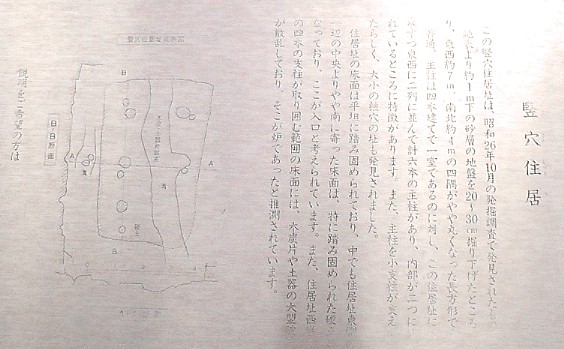 竪穴住居
この竪穴住居址は、昭和26年10月の発掘調査で発見された
地表より約1m下の砂層の地盤を20～30cm掘り下げたところ
り、東西約7m、南北約4mの四隅がやや丸くなった長方形で
普通、主柱は四本建てで一室であるのに対し、この住居址に
ずつ東西に二列に並んで計六本の主柱があり、内部が二つに
れているところに特徴があります。また、主柱を小支柱が支え
たらしく、大小の柱穴の址も発見されました。
住居址の床面は平坦に踏み固められており、中でも住居址東
一辺の中央よりやや南に寄った床面は、特に踏み固められた
なっており、ここが入口と考えられています。また、住居址西
の四本の支柱が取り囲む範囲の床面には、木炭片や土器の大型
が散乱しており、そこが炉であったと推測されています。
説明をご希望の方は
A
A
B
B